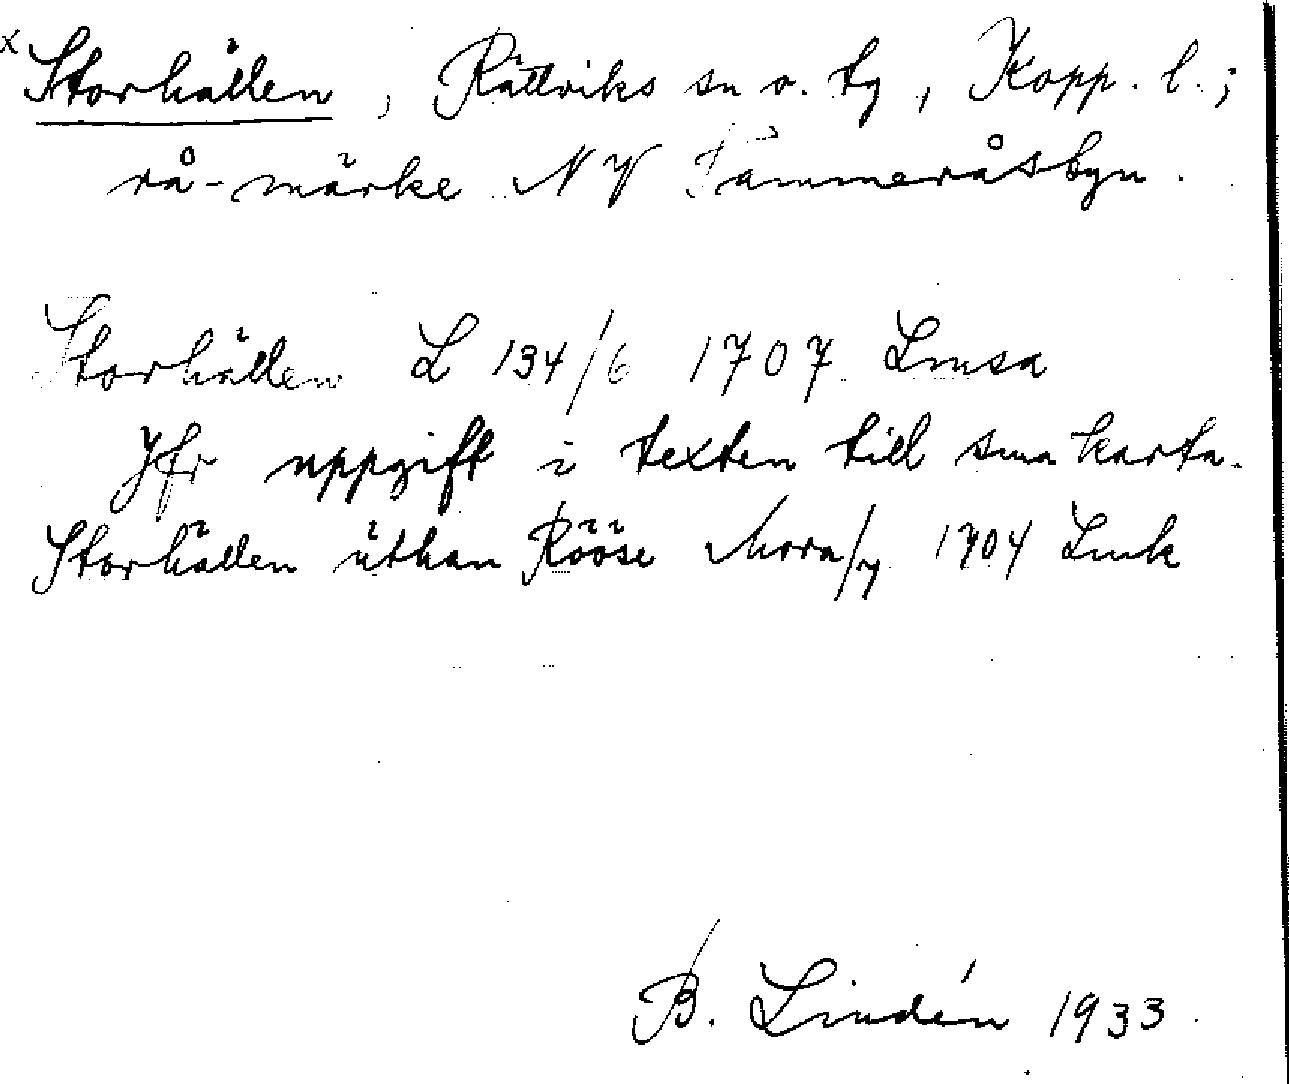 x Storhällen, Rättviks sn o. tg, Kopp. l.;
rå-märke NV Gammeråsbyn.
Storhällen L 134/6 1707 Lmsa
Jfr uppgift i texten till sma karta.
Storhällen üthan Rööse Mora/7 1704 Lmk
B. Lindén 1933.